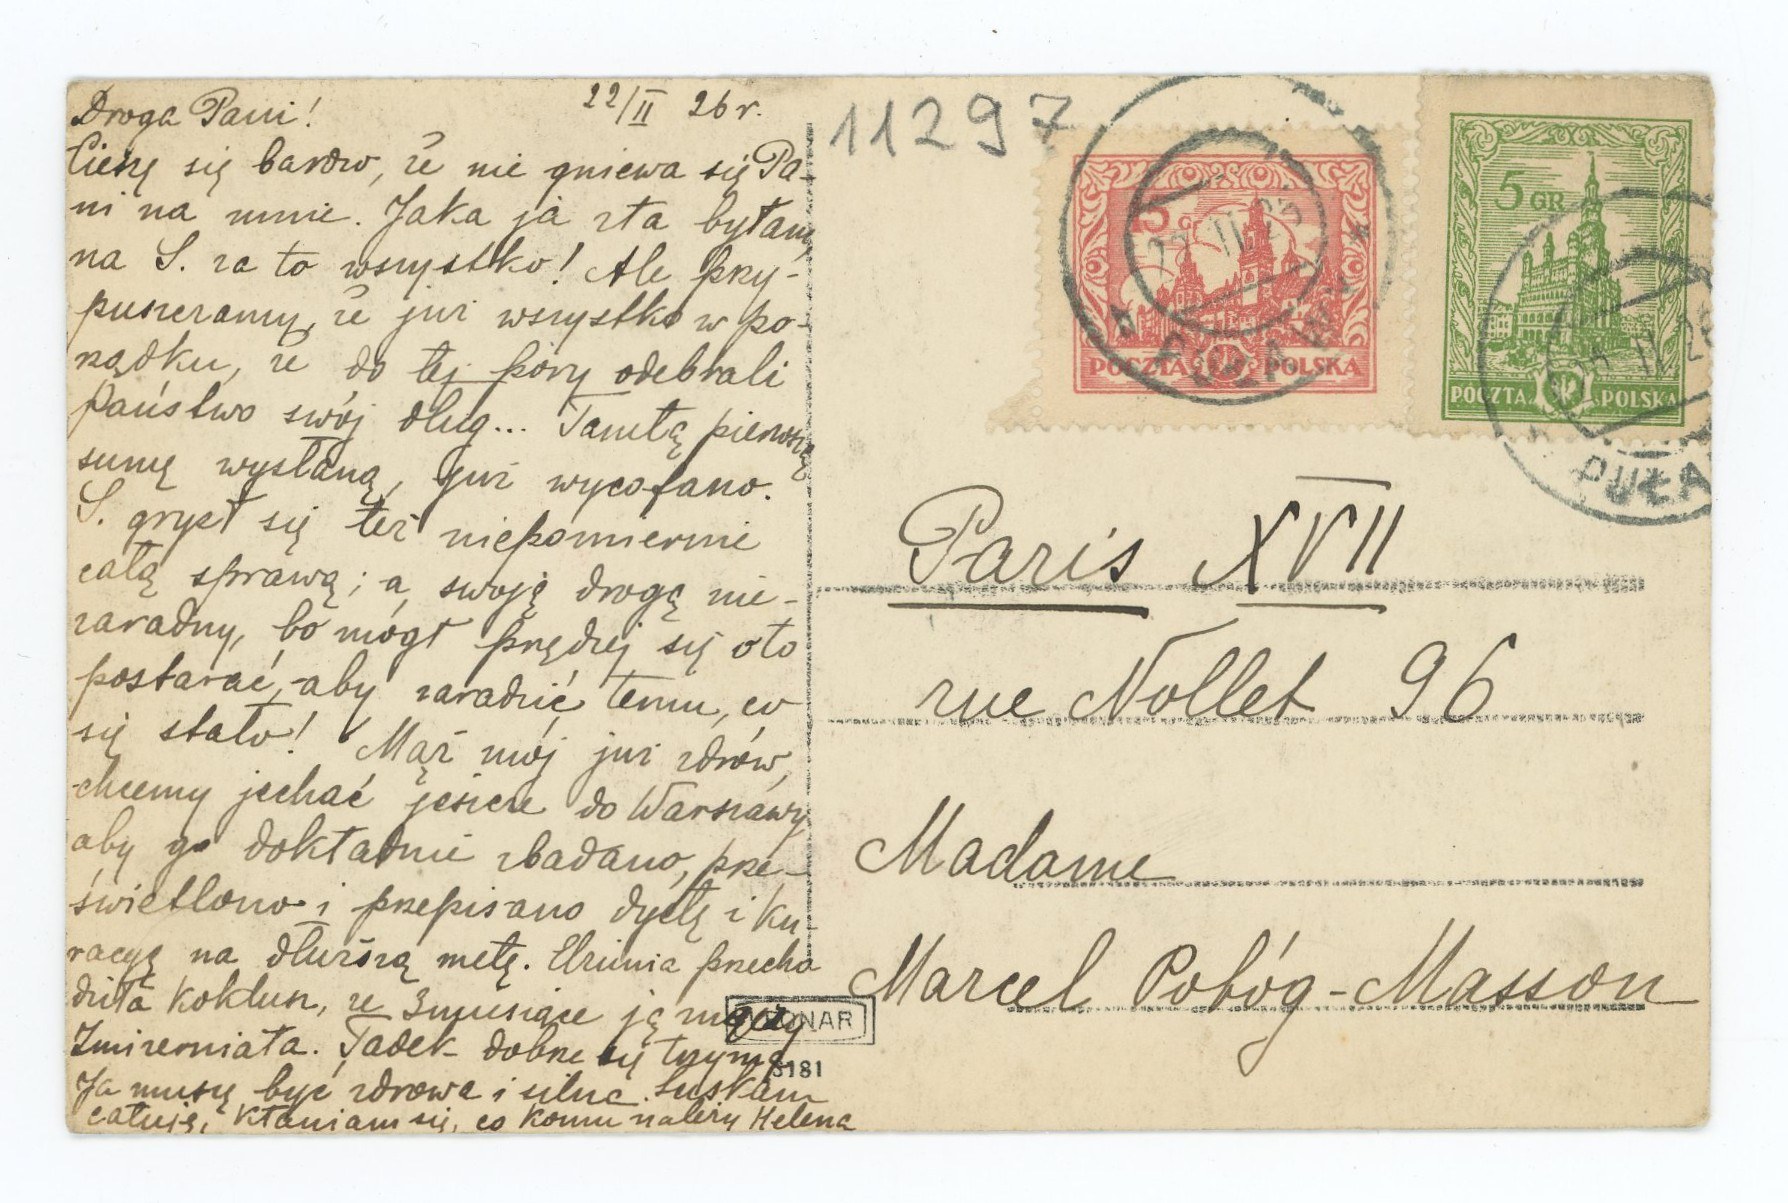 22/II 26 r.
Droga Pani!
Cieszę się bardzo, że nie gniewa się Pa-
ni na mnie. Jaka ja zła byłam
na S. za to wszystko! Ale przy-
puszczamy, że już wszystko w po-
rządku, że do tej pory odebrali
Państwo swój dług... Tamtą pierwszą
sumę wysłaną, już wycofano.
S. gryzł się też niepomiernie
całą sprawą; a swoją drogą nie-
zaradny, bo mógł prędzej się o to
postarać, aby zaradzić temu, co
się stało! Mąż mój już zdrów,
chcemy jechać jeszcze do Warszawy
aby go dokładnie zbadano, prze-
świetlono i przepisano dyetę i ku-
racyę na dłuższą metę. przecho
dziła koklusz, że 3 miesiące ją męczy
Zmizerniała. Tadek dobrze się trzyma
Ja muszę być zdrowa i silna.
całuję, kłaniam się, co komu należy Helena
11297
5
POCZTA POLSKA
PUŁAWY
22 II 26
5 GR
POCZTA POLSKA
II
PUŁA
Paris XVII
rue Nollet 96
Madame
Marcel Pobóg-Masson
3181